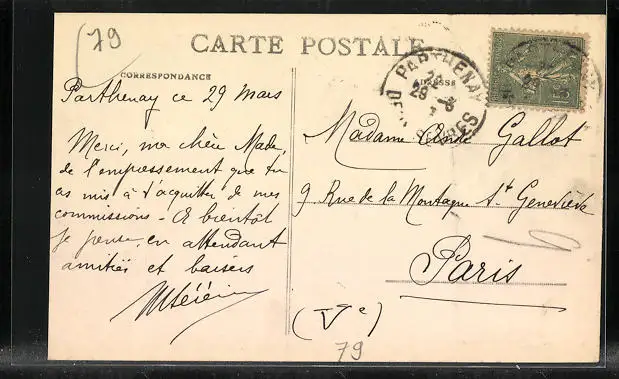 (79
CARTE POSTALE
CORRESPONDANCE
ADRESSE
PARTHENAY
29
Parthenay ce 29 mars
Merci, ma chère Made,
de l'empressement que tu
as mis à t'acquitter de mes
commissions - A bientôt
je pense, en attendant
amitiés et baisers
Madame Gallot
9 Rue de la Montagne Ste Geneviève
Paris
(Ve)
79